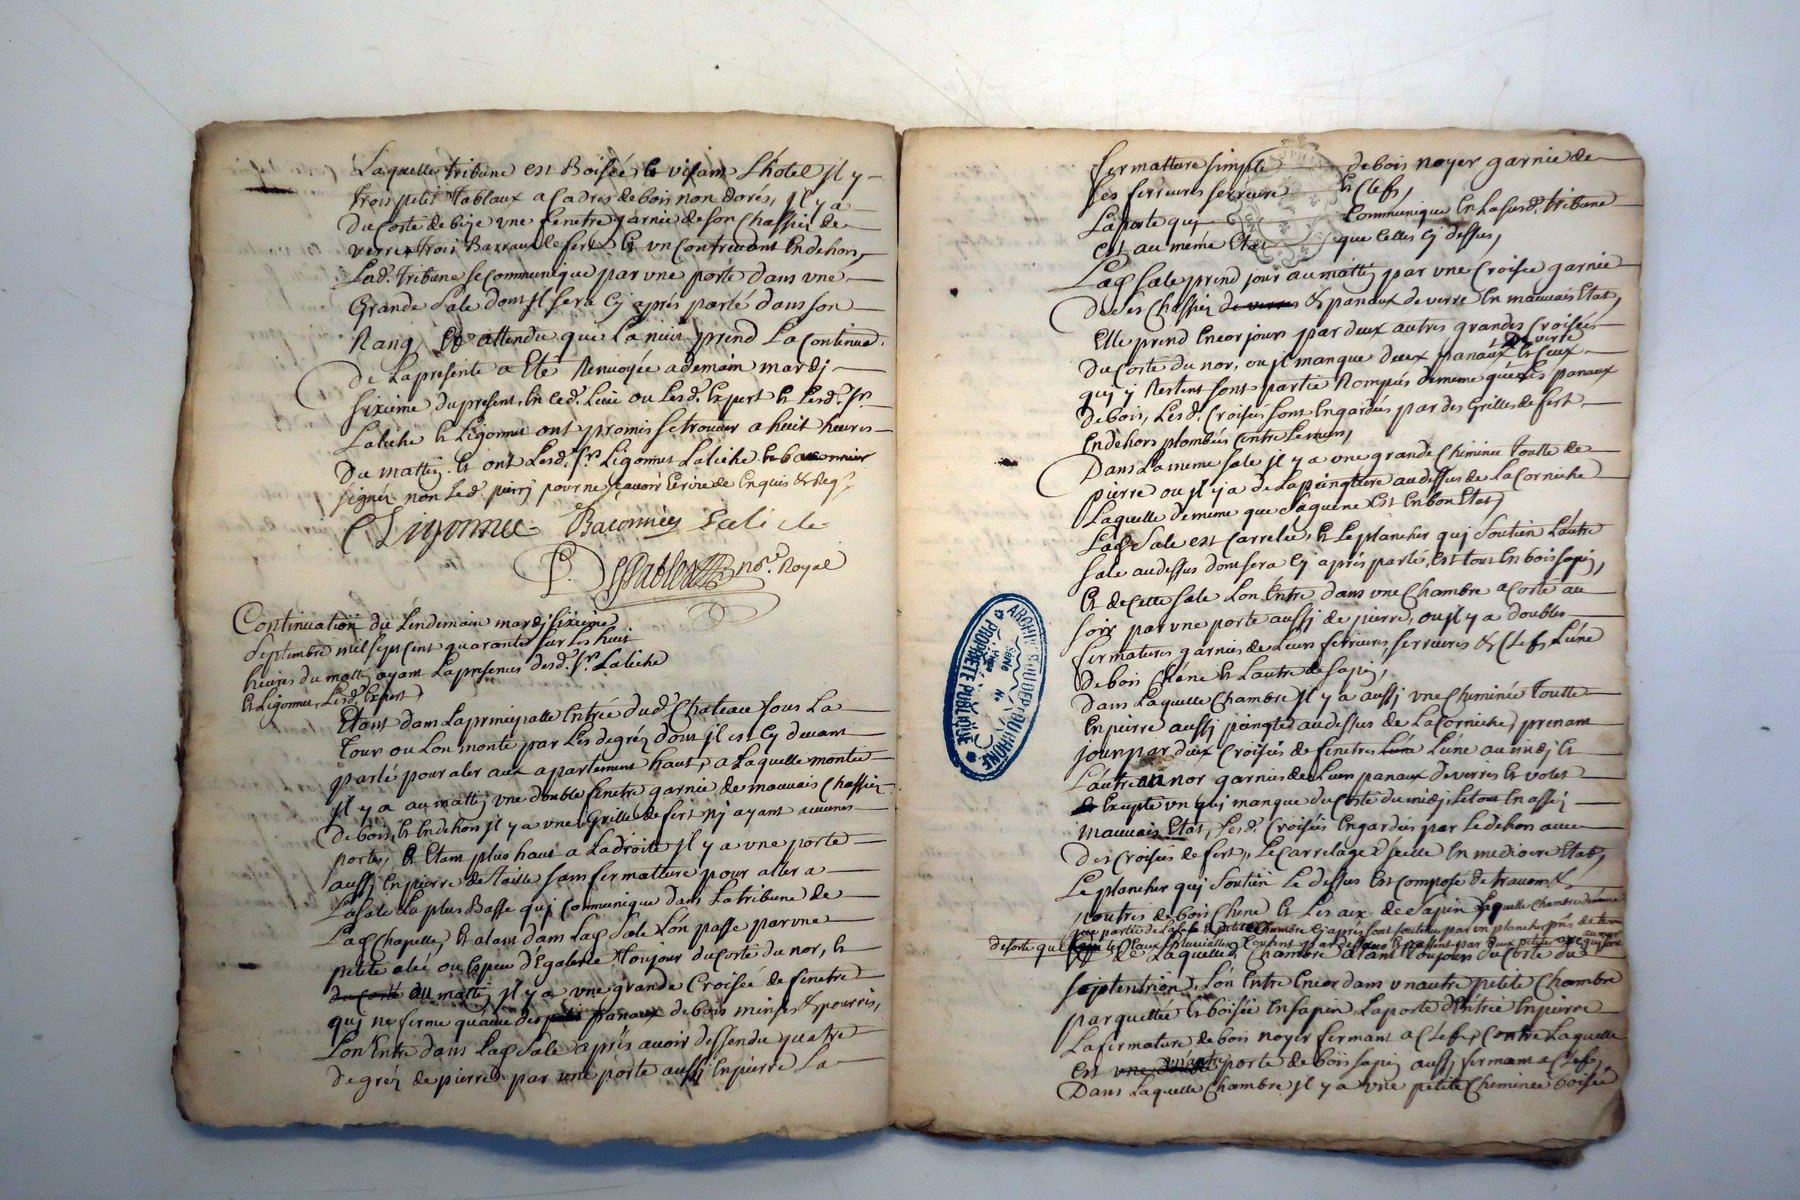 Laquelle tribune est Boisée & visant L'hotel jl y
trois petit Tablaux a Cadres de bois non dorés, jl y a
Du Coste de bize vne fenetre garnie de son Chassier de
verre trois Barraux de fert & vn Contrevent En dehors,
Lad. Tribune se Communique par vne porte dans vne
Grande Sale dont jl sera Cy après parlé dans son
Rang, Et attendu que La nuit prend La Continua.
De La presente a Eté Renvoyée a demain mardj
sixieme du present, En Ced. Lieu ou Lesd. Expert & Lesd. Srs
Laliche & Ligonnet ont promis se trouver a huit heures
Du mattin. & ont Lesd. Srs Ligonnet Laliche & baconnier
signés non Led. pierrj pour ne sçavoir Ecrire de Enquis & Req.
Ligonnet Baconnier Laliche
no.re Royal
Continuation du Lendemain mardj sixieme
septembre mil sept Cent quarante sur Les huit
heures du mattin ayant La presence desd. Srs Laliche
& Ligonnet, Lesd. Expert
Etant dans La principalle Entrée dud. Chateau sous La
Tour ou L'on monte par Les degrez dont jl est Cy devant
parlé pour aler aux apartement haut, a Laquelle montée
jl y a au mattin vne double fenetre garnie de mauvais Chassier
De bois, & En dehors jl y a vne Grille de fert nj ayant aucunes
portes, & Etant plus haut a La droite jl y a vne porte
aussj En pierre de Taille sans fermatture pour aller a
La sale La plus Basse quj Communique dans La tribune de
Lad. Chapelle, & alant dans Lad. Sale L'on passe par vne
petite alée ou Espece d'Egalerie Toujour du Coste du nor, &
du Costé au mattin jl y a vne grande Croisée de fenetre
quj ne ferme qu'avec des panaux de bois minses & pourris,
L'on Entre dans Lad. Sale après avoir dessendu quatre
Degrez de pierre par vne porte aussj En pierre La
fermatture simple de bois noyer garnie de
ses ferrures serrure & Clefs,
La porte quj Communique En La susd. tribune
Est au même Etat que Celles Cj dessus,
Lad. Sale prend jour au mattin par vne Croisée garnie
De ses Chassier de verres & panaux de verre En mauvais Etat,
Elle prend Encor jours par deux autres grandes Croisées
Du Coste du nor, ou jl manque deux panaux de verre & Ceux
quj y Restent sont partie Rompus de meme que Les panaux
de bois, Lesd. Croisées sont Engardées par des Grilles de fert
En dehors plombées Contre Le murs,
Dans La meme Sale jl y a vne grande Cheminée Toutte de
pierre ou jl y a de La peingture au dessus de La Corniche
Laquelle de meme que Est En bon Etat,
Lad. Sale est Carrelée, & Le plancher quj Soutien L'autre
Sale au dessus dont sera Cy après parlé, Est tout En bois sapin,
Et de Cette Sale L'on Entre dans vne Chambre a Coste au
soir par vne porte aussj de pierre, ou jl y a doubles
fermatures garnies de Leurs ferrures, serrures & Clefs L'une
De bois Chêne & L'autre de sapin,
Dans Laquelle Chambre jl y a aussj vne Cheminée Toutte
En pierre aussj peingte au dessus de La Corniche, prenant
jour par deux Croisées de fenetres L'une au midj &
L'autre au nor garnies de Leurs panaux de verres & volet
Excepte vn quj manque du Coste du midj, Le tout En assez
mauvais Etat, Lesd. Croisées Engardées par Le dehors avec
Des Croisées de fert, Le Carrelage d'icelle En mediocre Etat,
Le plancher quj Soutien Le dessus Est Composé de travons &
poutres de bois Chêne & Les aix de Sapin Laquelle Chambre de même
que partie de La Sale & petite Chambre Cy après sont soutenus par vn plancher près de terre
de sorte que Les Eaux pluvialles Coulent par dessous & passent par deux petits
De Laquelle Chambre alant Toujours du Coste du
septentrion, L'on Entre Encor dans vn autre petite Chambre
parquettée & boisée En sapin, La porte d'Entrée En pierre
La fermature de bois noyer fermant a Clef, Contre Laquelle
Est vne autre porte de bois sapin aussj fermant a Clef,
Dans Laquelle Chambre jl y a vne petite Cheminée boisée
ARCHIVES DU DEPT DU RHONE
PROPRIETE PUBLIQUE
Serie
No